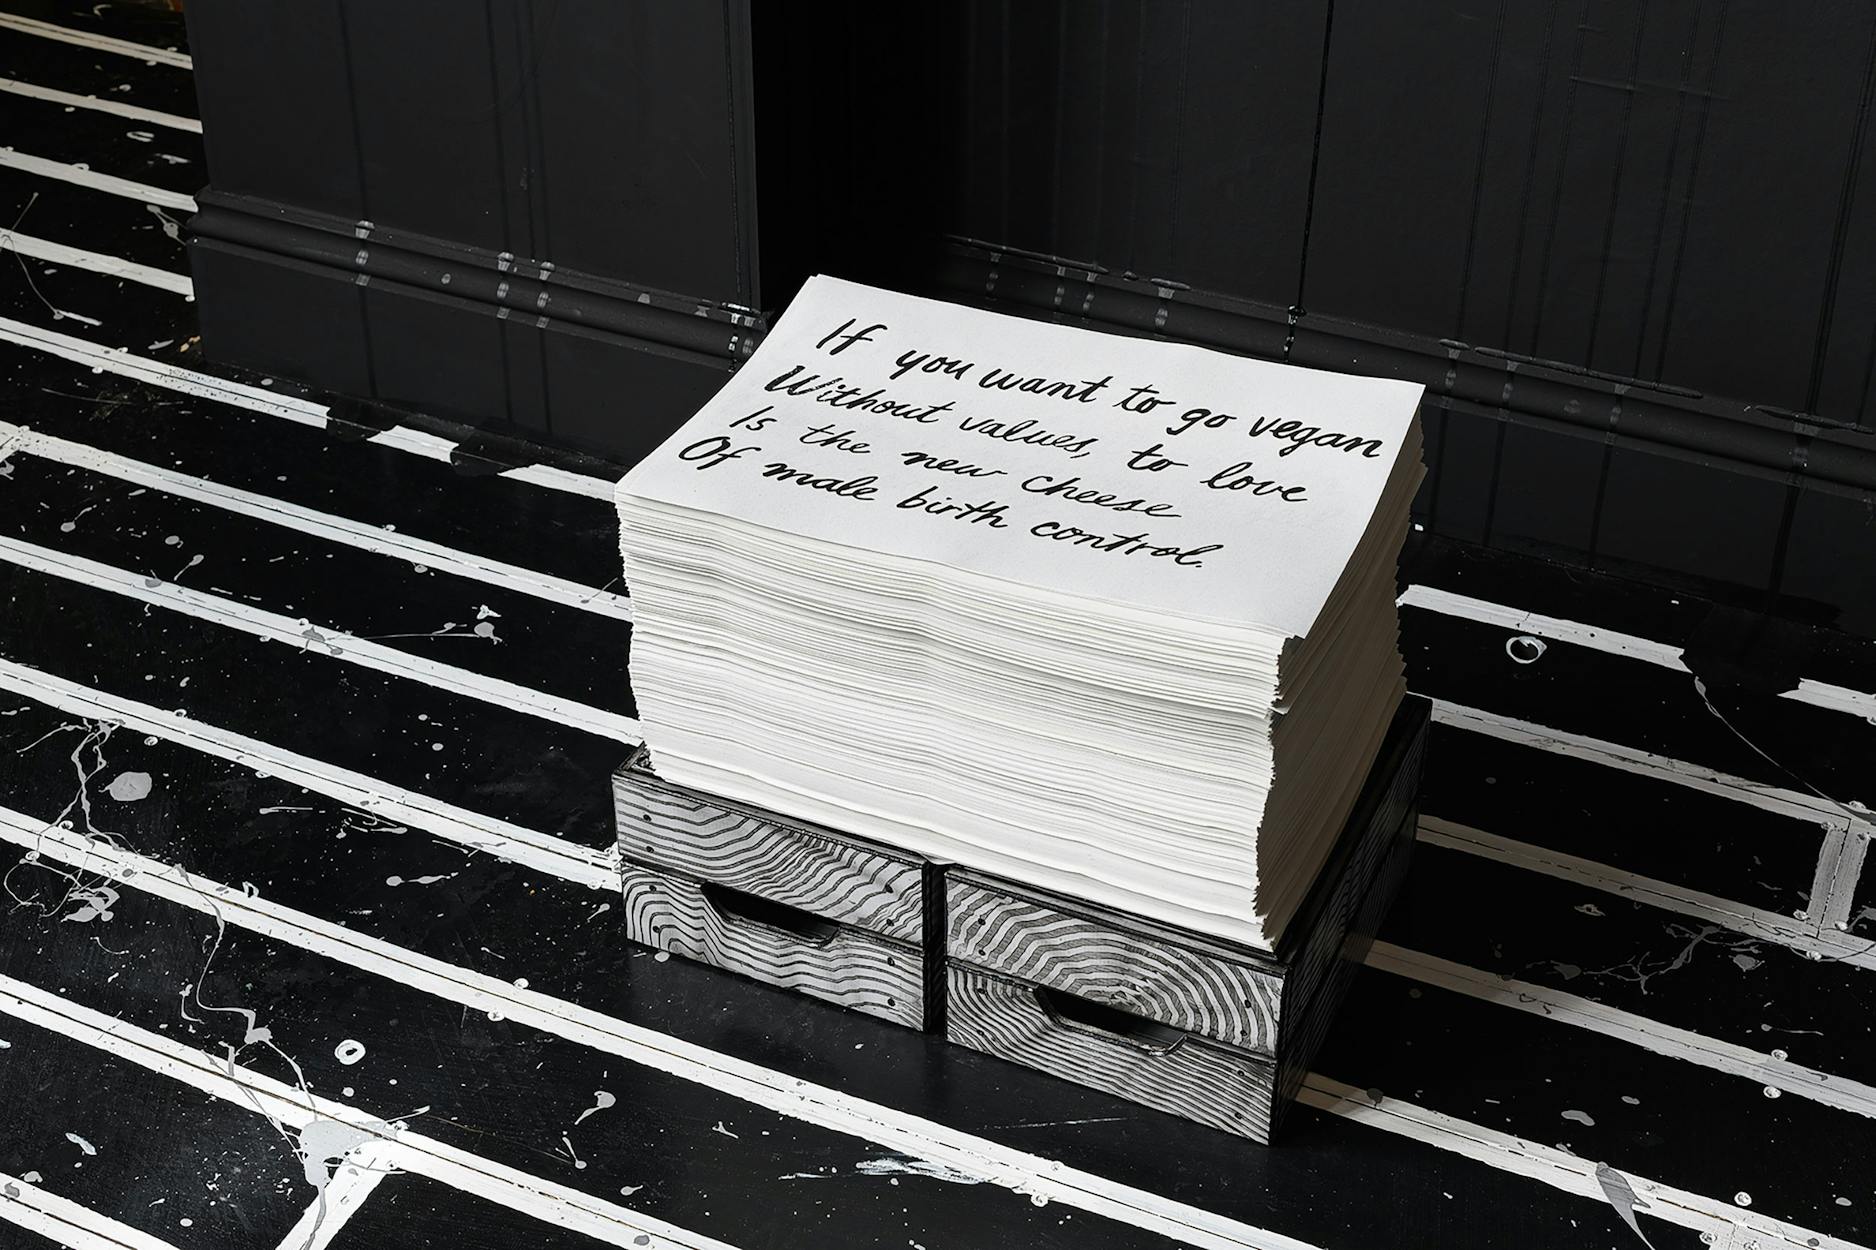 If you want to go vegan
Without values, to love
Is the new cheese
Of male birth control.